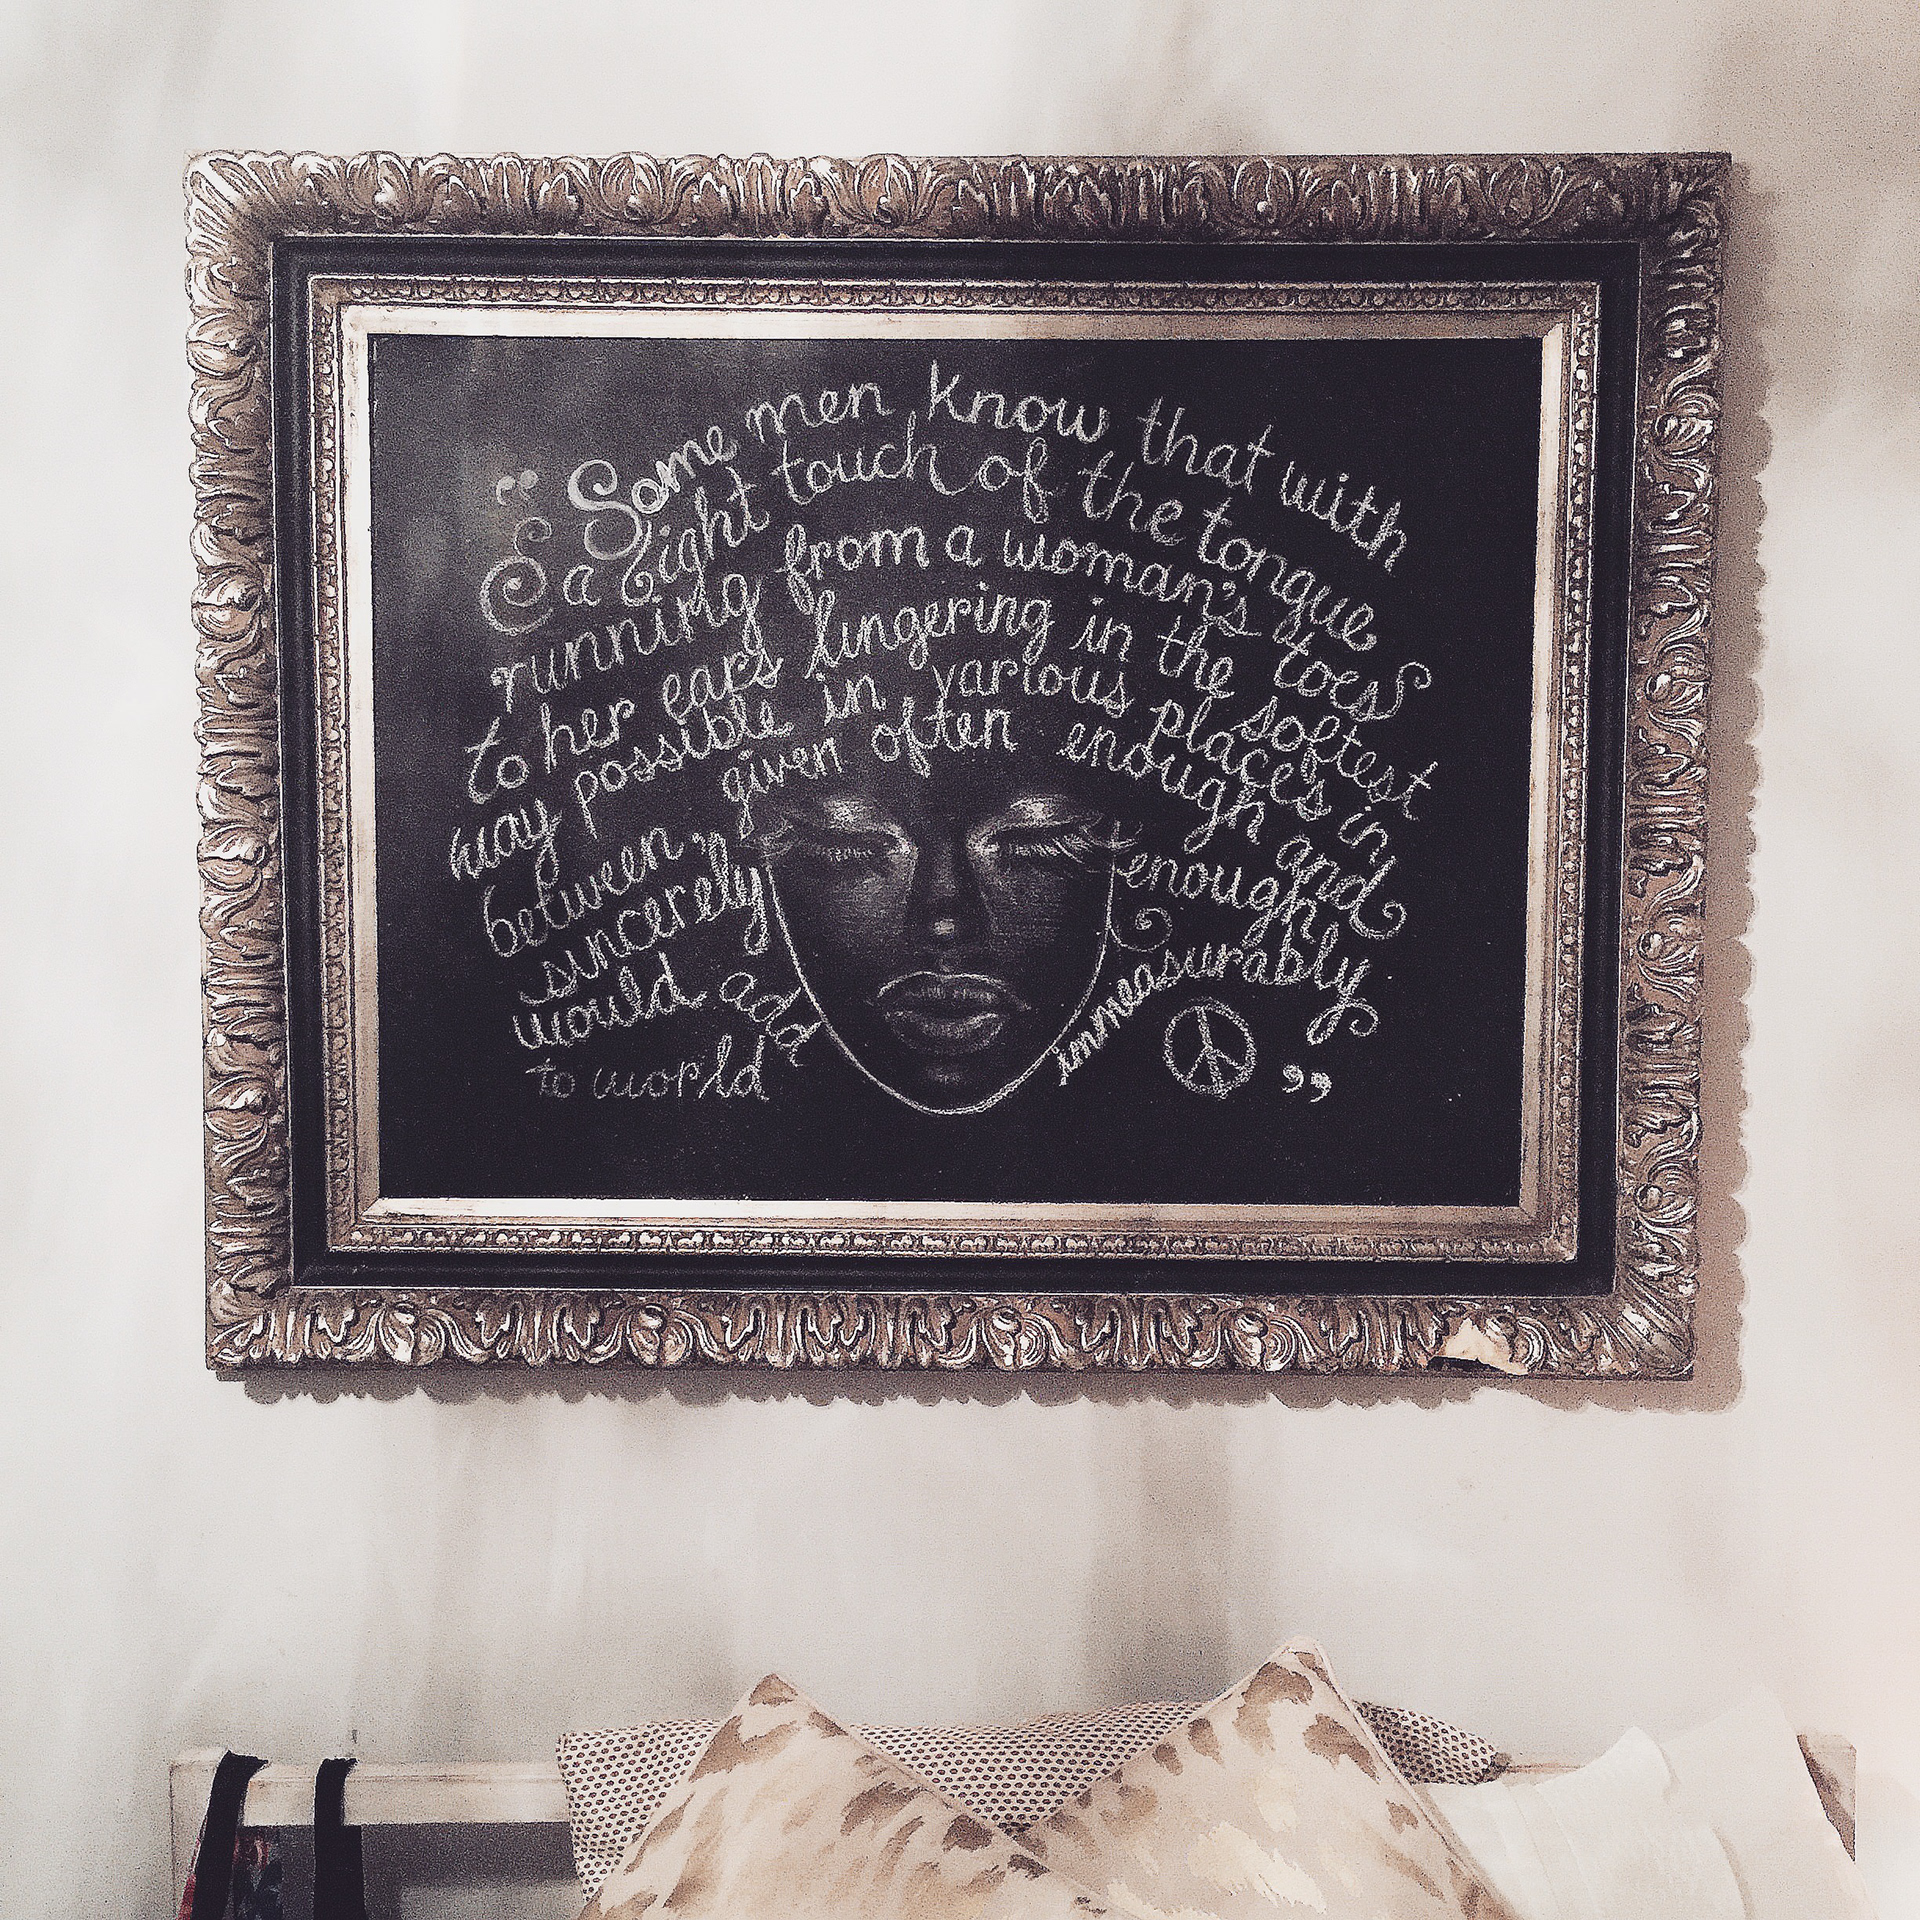 “Some men know that with
a light touch of the tongue
running from a woman's toes
to her ears lingering in the softest
way possible in various places in
between, given often enough and
sincerely enough
would add immeasurably
to world ☮”